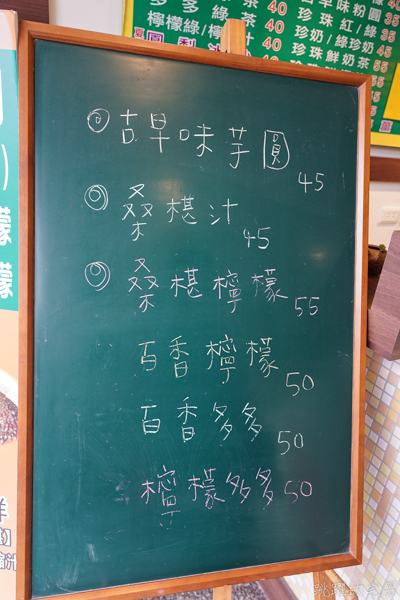 多多綠茶 40
檸檬綠/檸檬汁 40
鳳梨汁 40
古早味粉圓
珍珠紅/綠 35
珍奶/綠珍奶 45
珍珠鮮奶茶 55
◎古早味芋圓 45
◎桑椹汁 45
◎桑椹檸檬 55
百香檸檬 50
百香多多 50
檸檬多多 50
檬
檬